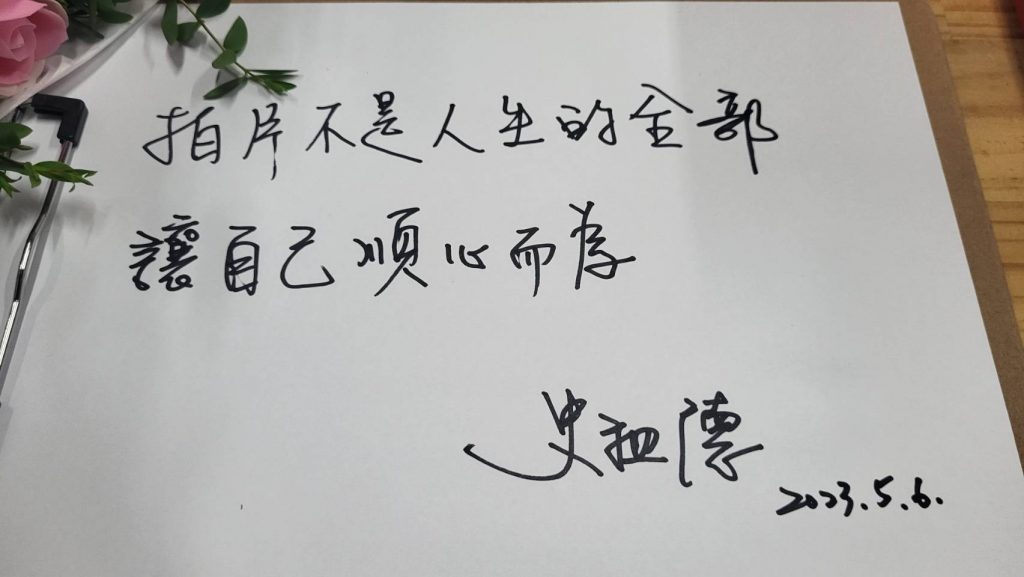 拍片不是人生的全部
讓自己順心而為
史祖德
2023.5.6.